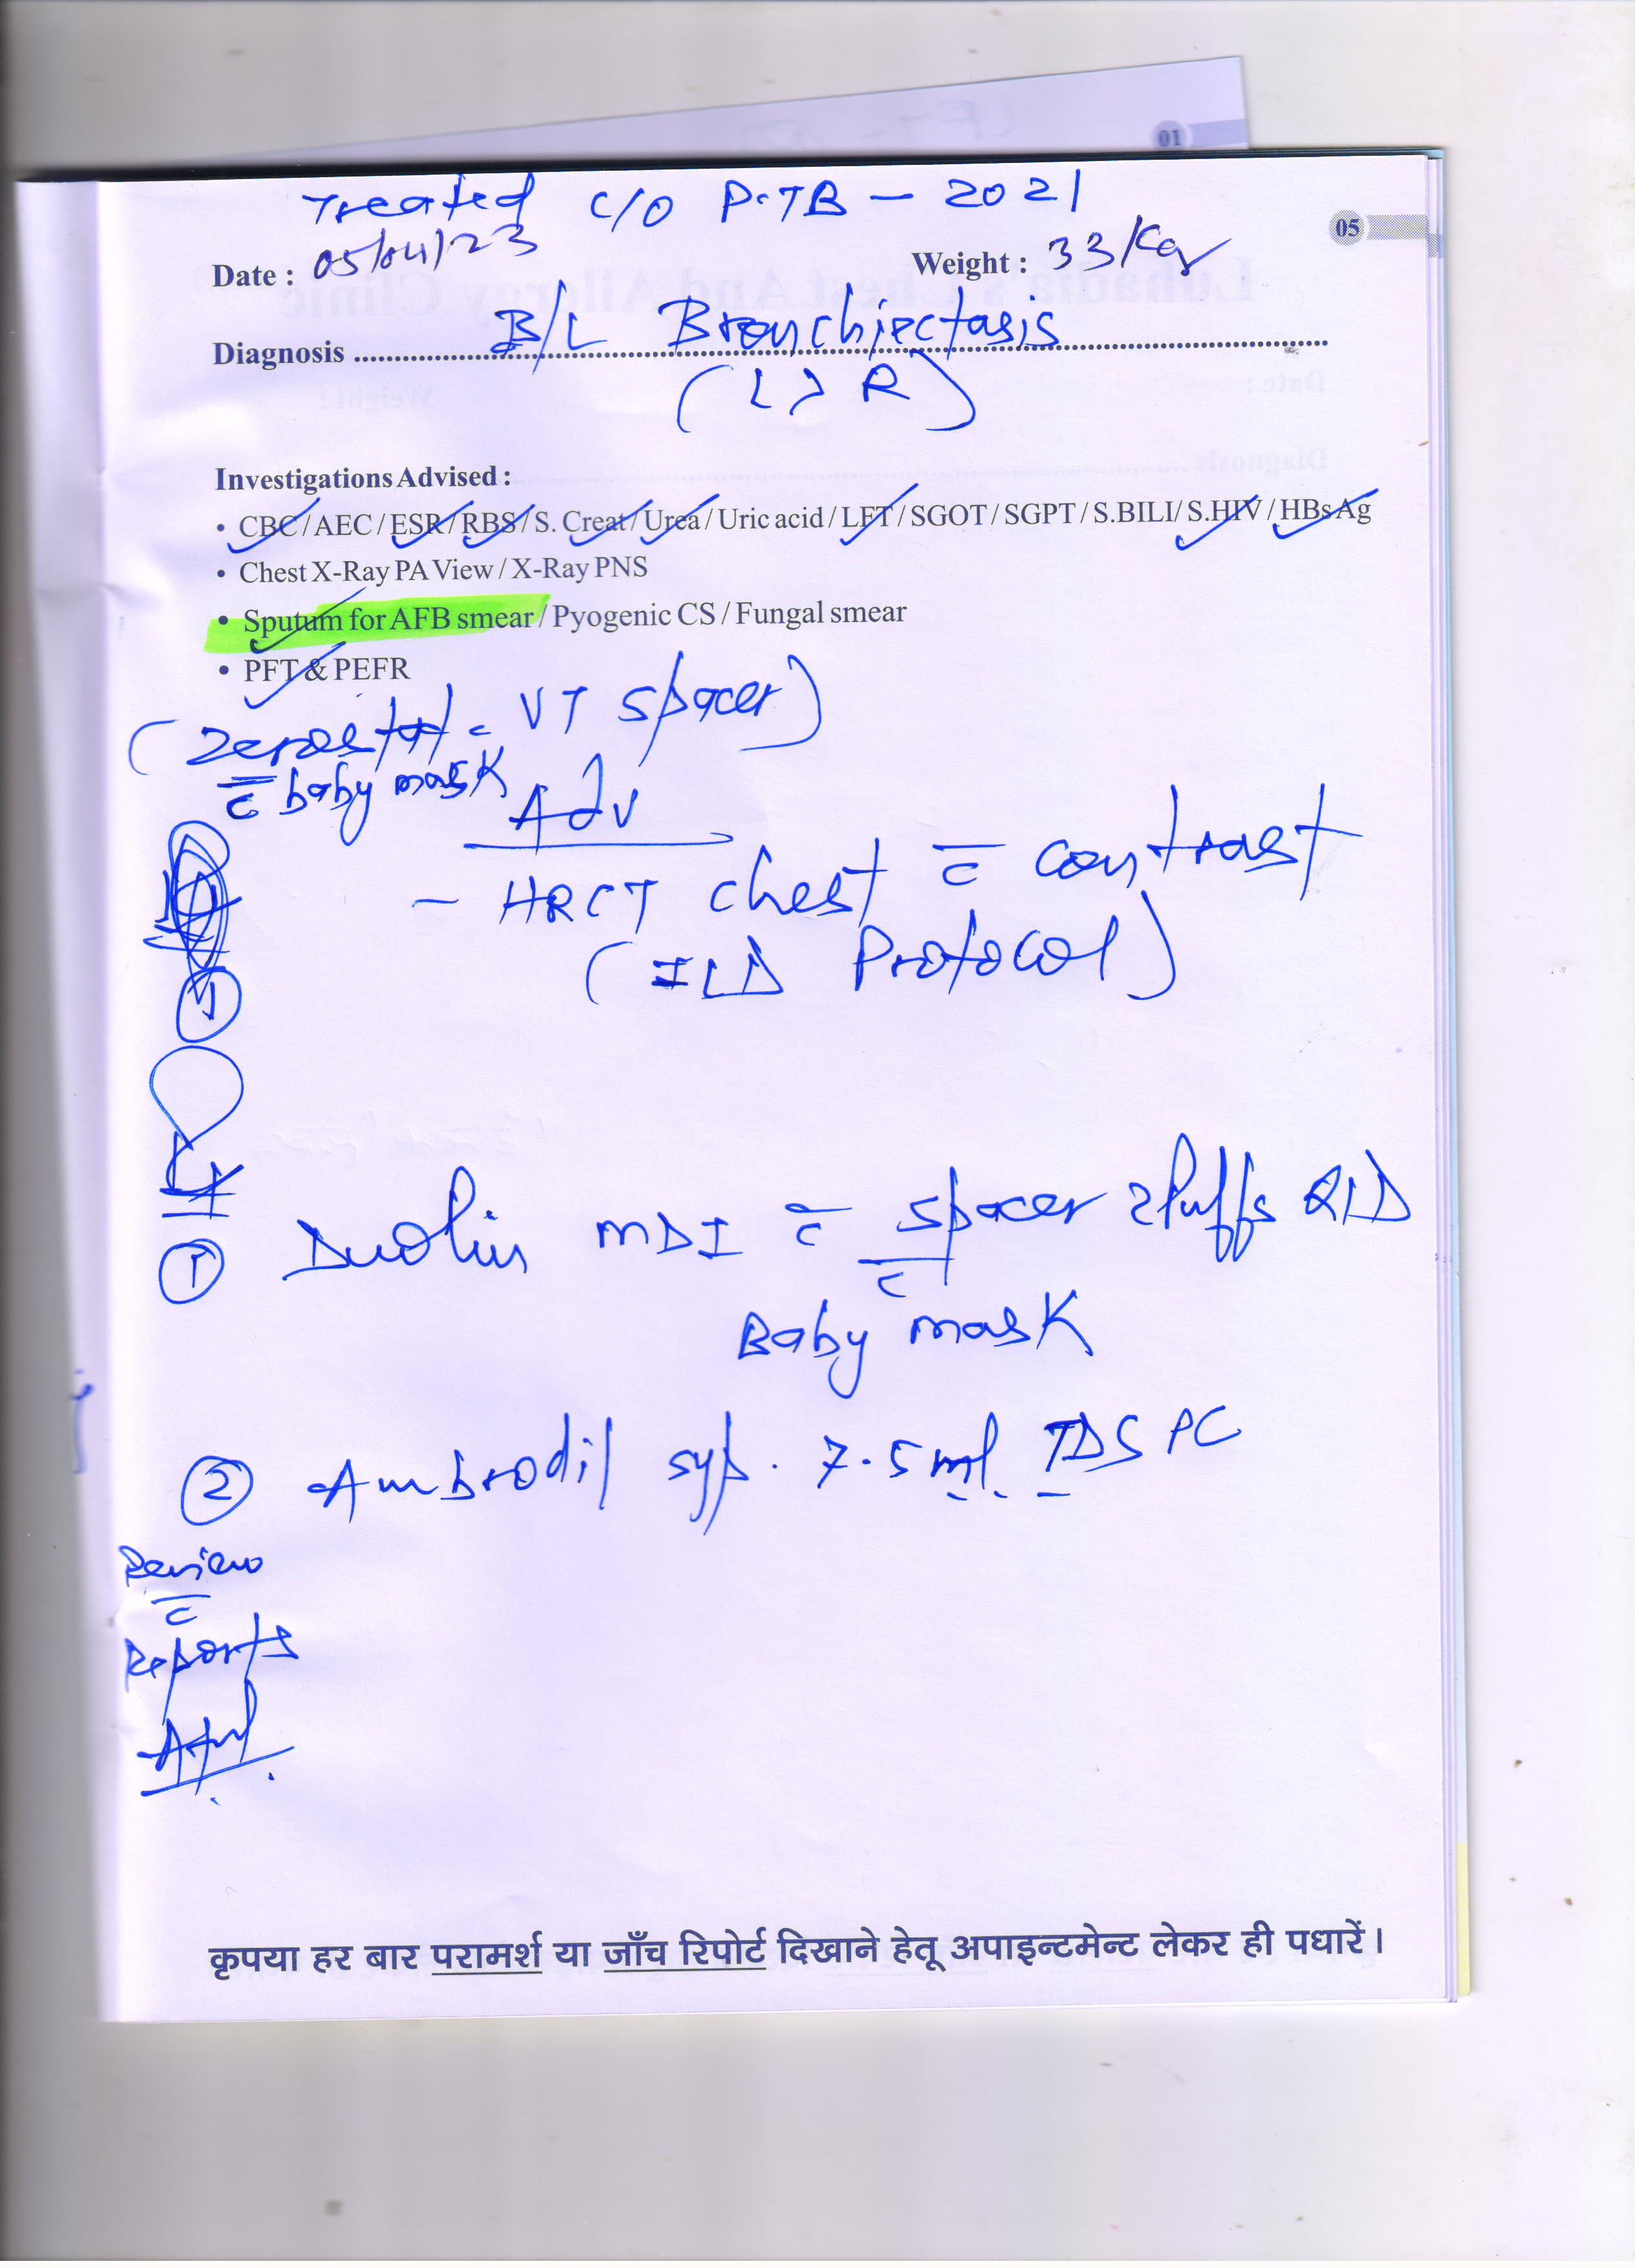 01
05
Treated C/O P.TB - 2021
Date : 05/04/23 Weight : 33/Kg
Diagnosis B/L Bronchiectasis
(L > R)
Investigations Advised :
• CBC / AEC / ESR / RBS / S. Creat / Urea / Uric acid / LFT / SGOT / SGPT / S.BILI / S.HIV / HBsAg
• Chest X-Ray PA View / X-Ray PNS
• Sputum for AFB smear / Pyogenic CS / Fungal smear
• PFT & PEFR
(Zerostat - VT Spacer)
c̄ baby mask
Adv
- HRCT chest c̄ contrast
(ILD Protocol)
① Duolin MDI c̄ spacer 2puffs QID
c̄
Baby mask
② Ambrodil syp. 7.5 ml TDS PC
Review
c̄
Reports
कृपया हर बार परामर्श या जाँच रिपोर्ट दिखाने हेतू अपाइन्टमेन्ट लेकर ही पधारें।